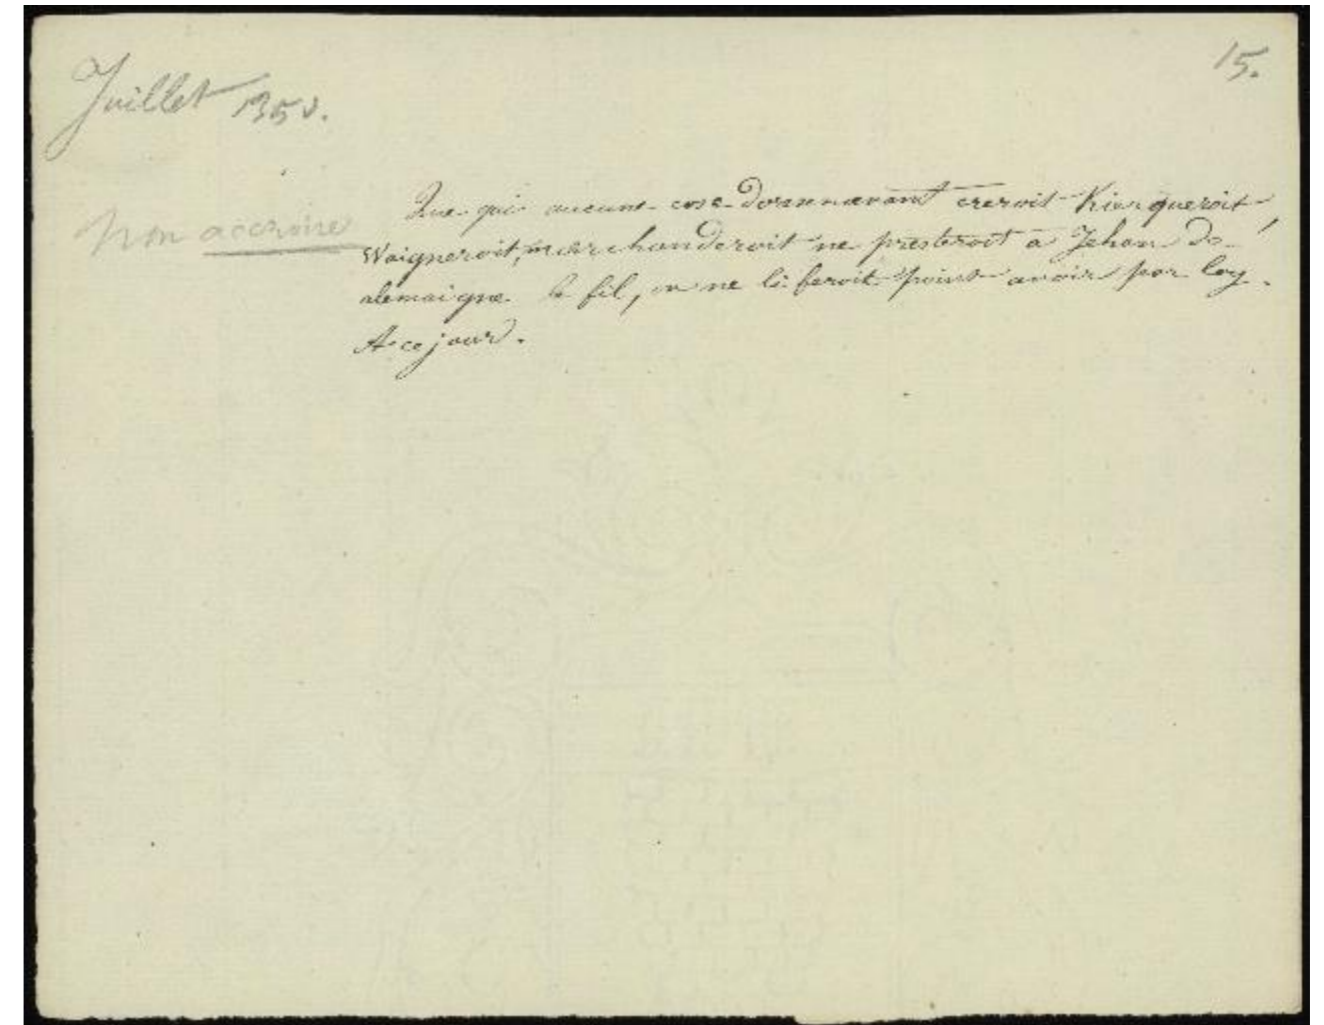 15.
Juillet 1350.
Non accroire
Que qui aucune cose doresenavant creroit Kierqueroit
Waigneroit, marchanderoit ne presteroit a Jehan de
alemaigne le fil, on ne li feroit point avoir par loy.
A ce jour.